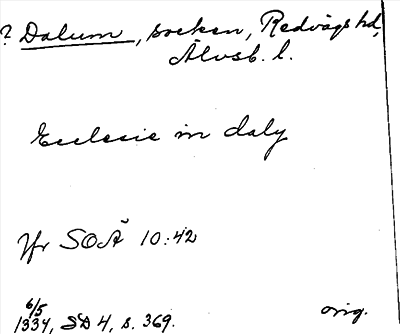 ? Dalum, socken, Redvägs hd,
Älvsb. l.
Ecclesie in daly
Jfr SOÄ 10:42
6/5
1334, SD 4, s. 369. orig.